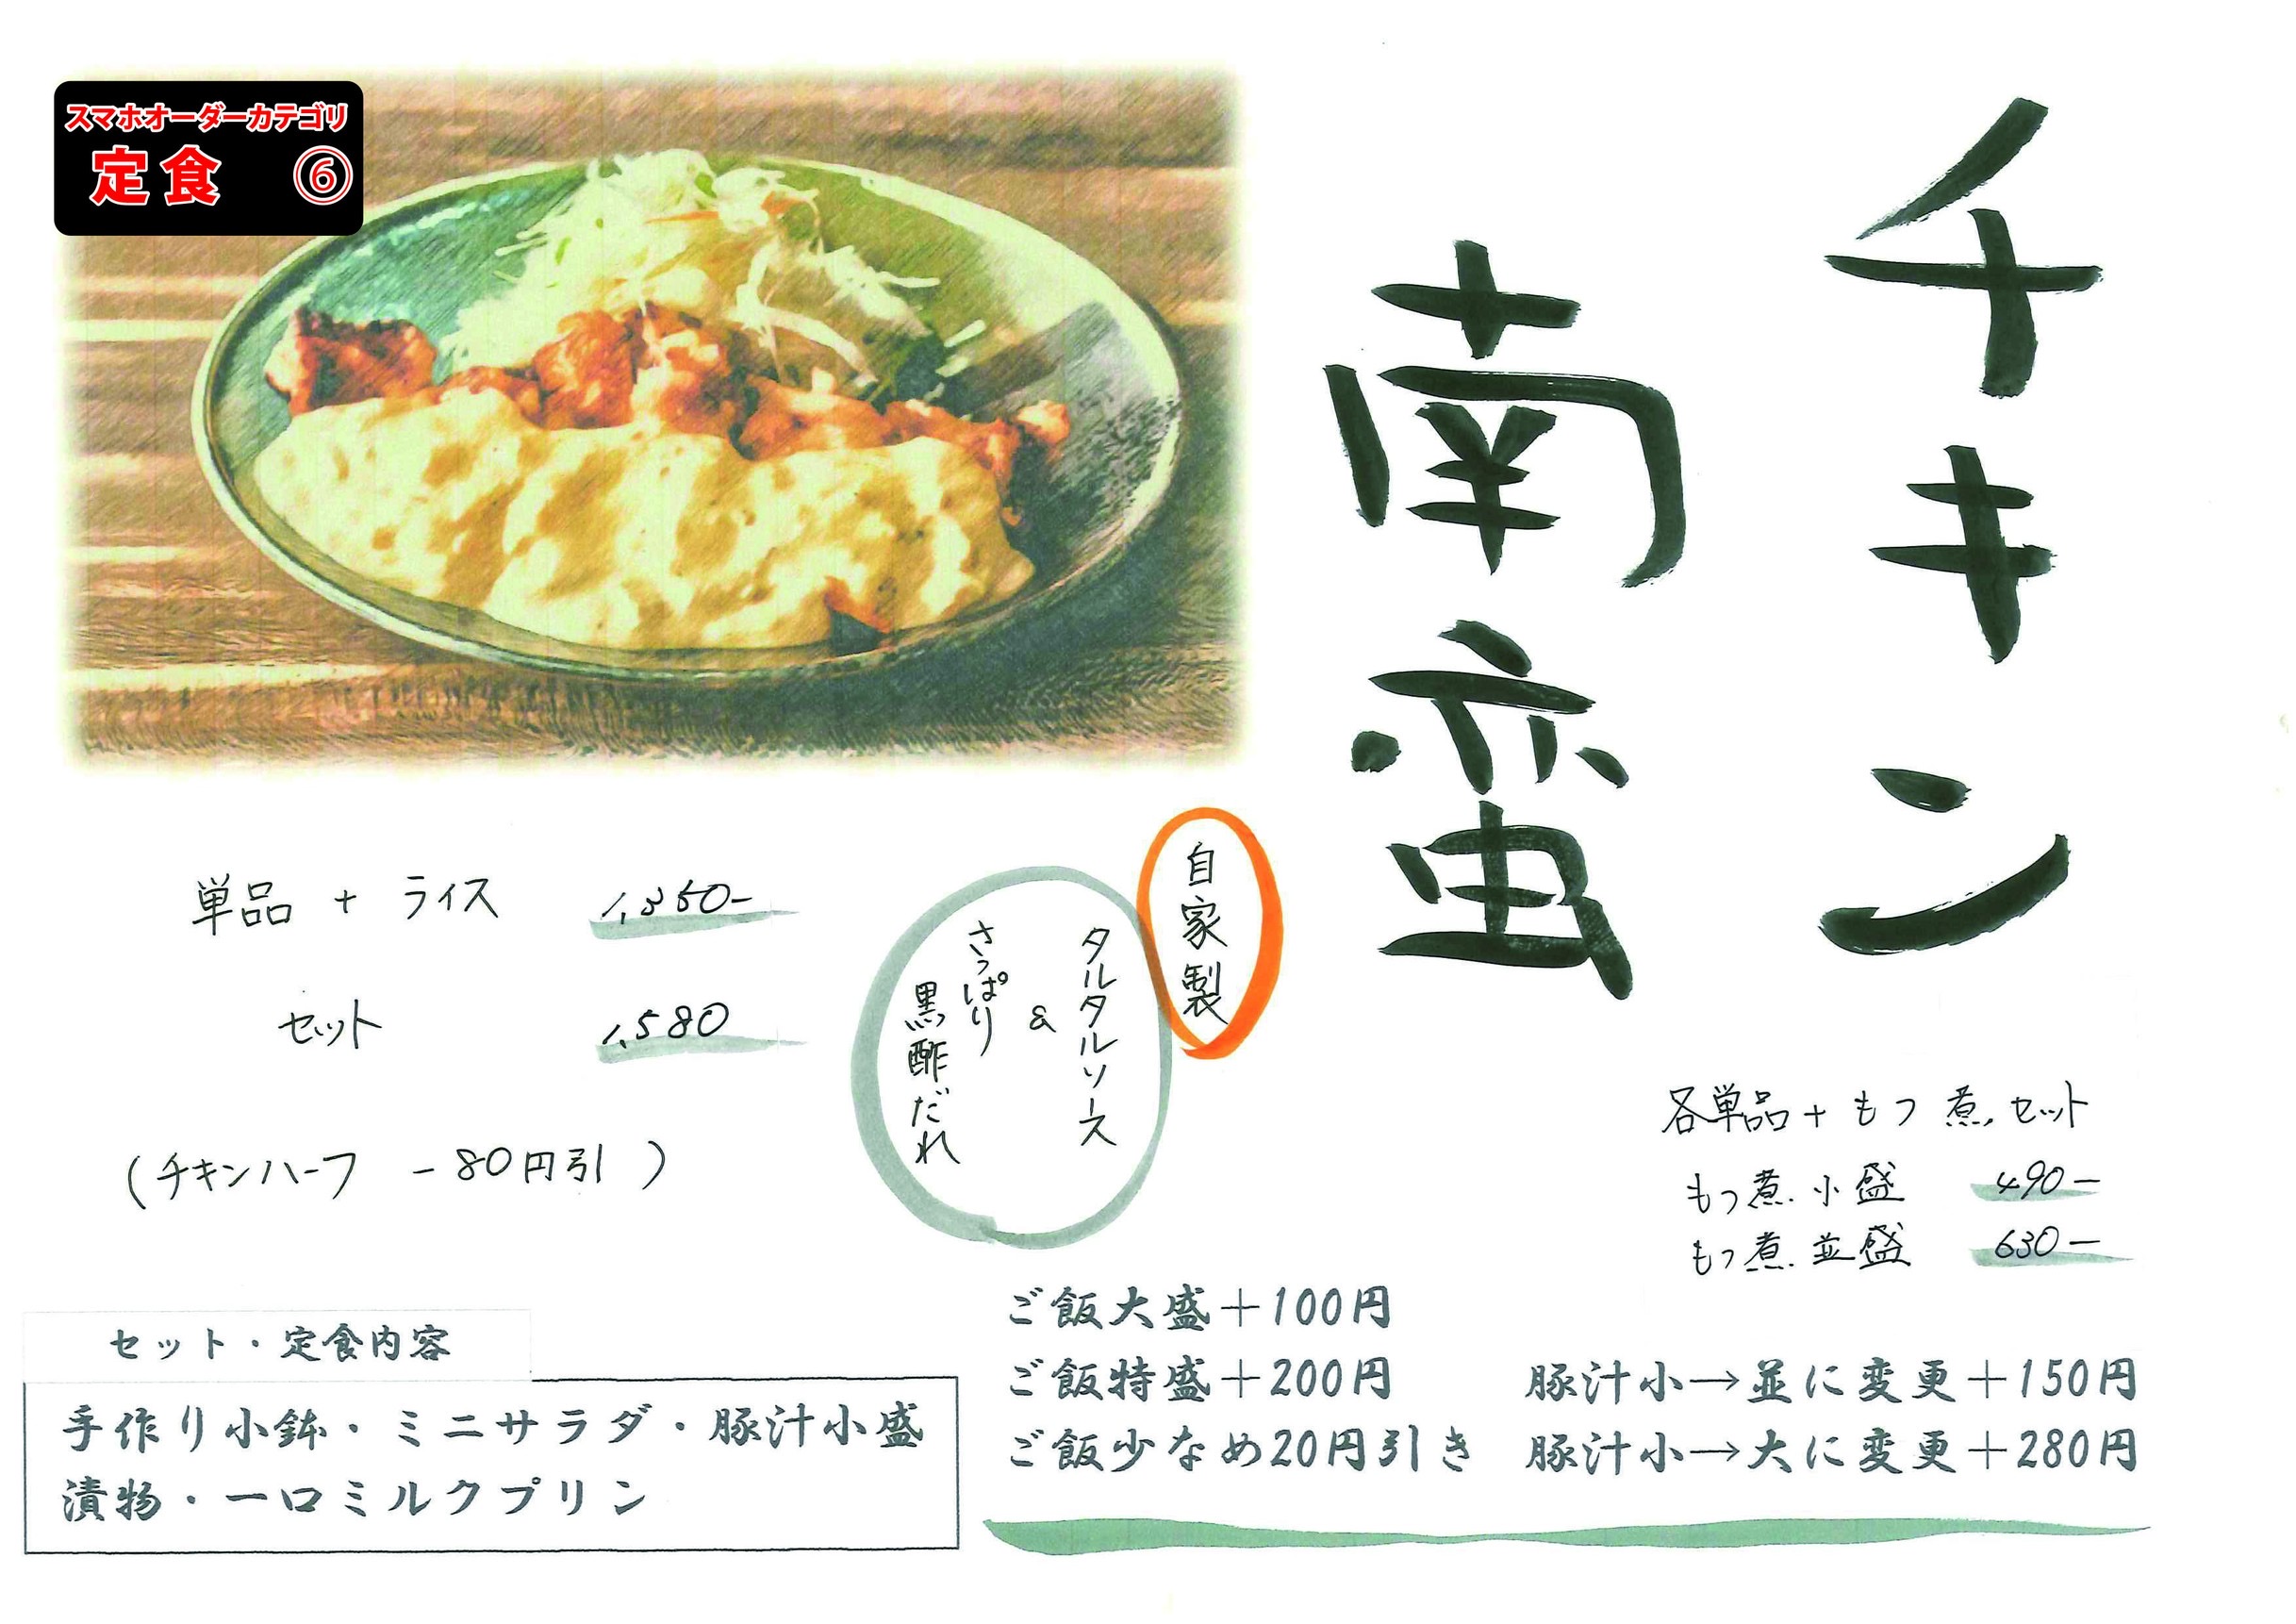 スマホオーダーカテゴリ
定食 ⑥
チキン
南蛮
自家製
タルタルソース
&
さっぱり
黒酢だれ
単品 + ライス 1,350-
セット 1,580
(チキンハーフ -80円引)
各単品+もつ煮セット
もつ煮小盛 490-
もつ煮並盛 630-
セット・定食内容
手作り小鉢・ミニサラダ・豚汁小盛
漬物・一口ミルクプリン
ご飯大盛+100円
ご飯特盛+200円
ご飯少なめ20円引き
豚汁小→並に変更+150円
豚汁小→大に変更+280円